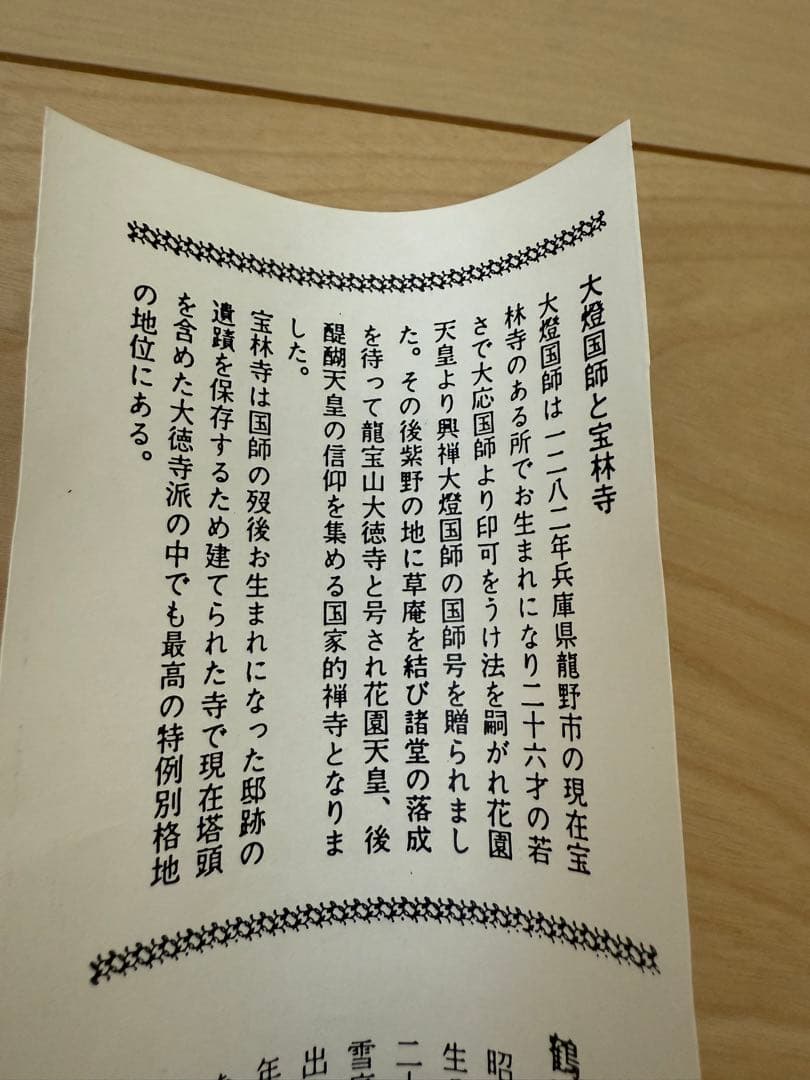 大燈国師と宝林寺
大燈国師は一二八二年兵庫県龍野市の現在宝
林寺のある所でお生まれになり二十六才の若
さで大応国師より印可をうけ法を嗣がれ花園
天皇より興禅大燈国師の国師号を贈られまし
た。その後紫野の地に草庵を結び諸堂の落成
を待って龍宝山大徳寺と号され花園天皇、後
醍醐天皇の信仰を集める国家的禅寺となりま
した。
宝林寺は国師の歿後お生まれになった邸跡の
遺蹟を保存するため建てられた寺で現在塔頭
を含めた大徳寺派の中でも最高の特例別格地
の地位にある。
鶴
昭
生
二
雪
出
年